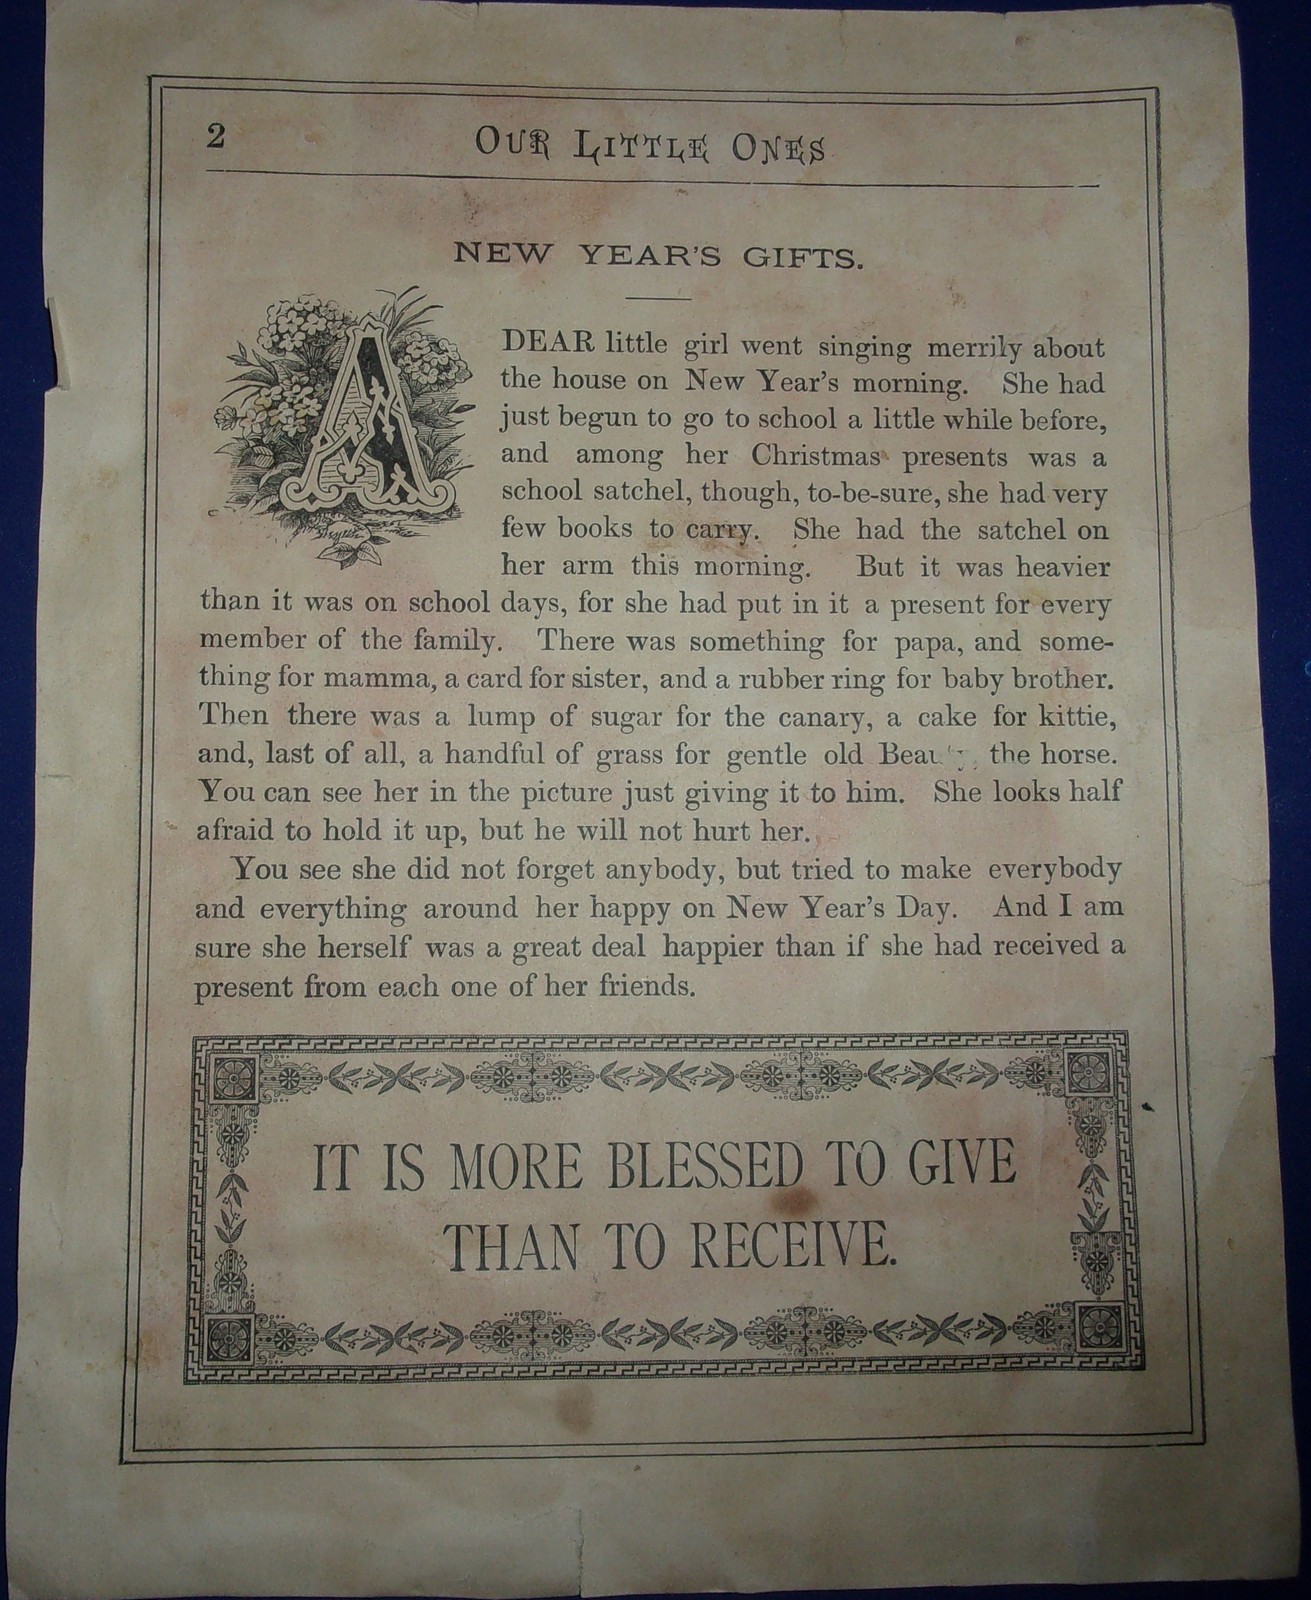 2
OUR LITTLE ONES
NEW YEAR'S GIFTS.
A DEAR little girl went singing merrily about
the house on New Year's morning. She had
just begun to go to school a little while before,
and among her Christmas presents was a
school satchel, though, to-be-sure, she had very
few books to carry. She had the satchel on
her arm this morning. But it was heavier
than it was on school days, for she had put in it a present for every
member of the family. There was something for papa, and some-
thing for mamma, a card for sister, and a rubber ring for baby brother.
Then there was a lump of sugar for the canary, a cake for kittie,
and, last of all, a handful of grass for gentle old the horse.
You can see her in the picture just giving it to him. She looks half
afraid to hold it up, but he will not hurt her.
You see she did not forget anybody, but tried to make everybody
and everything around her happy on New Year's Day. And I am
sure she herself was a great deal happier than if she had received a
present from each one of her friends.
IT IS MORE BLESSED TO GIVE
THAN TO RECEIVE.